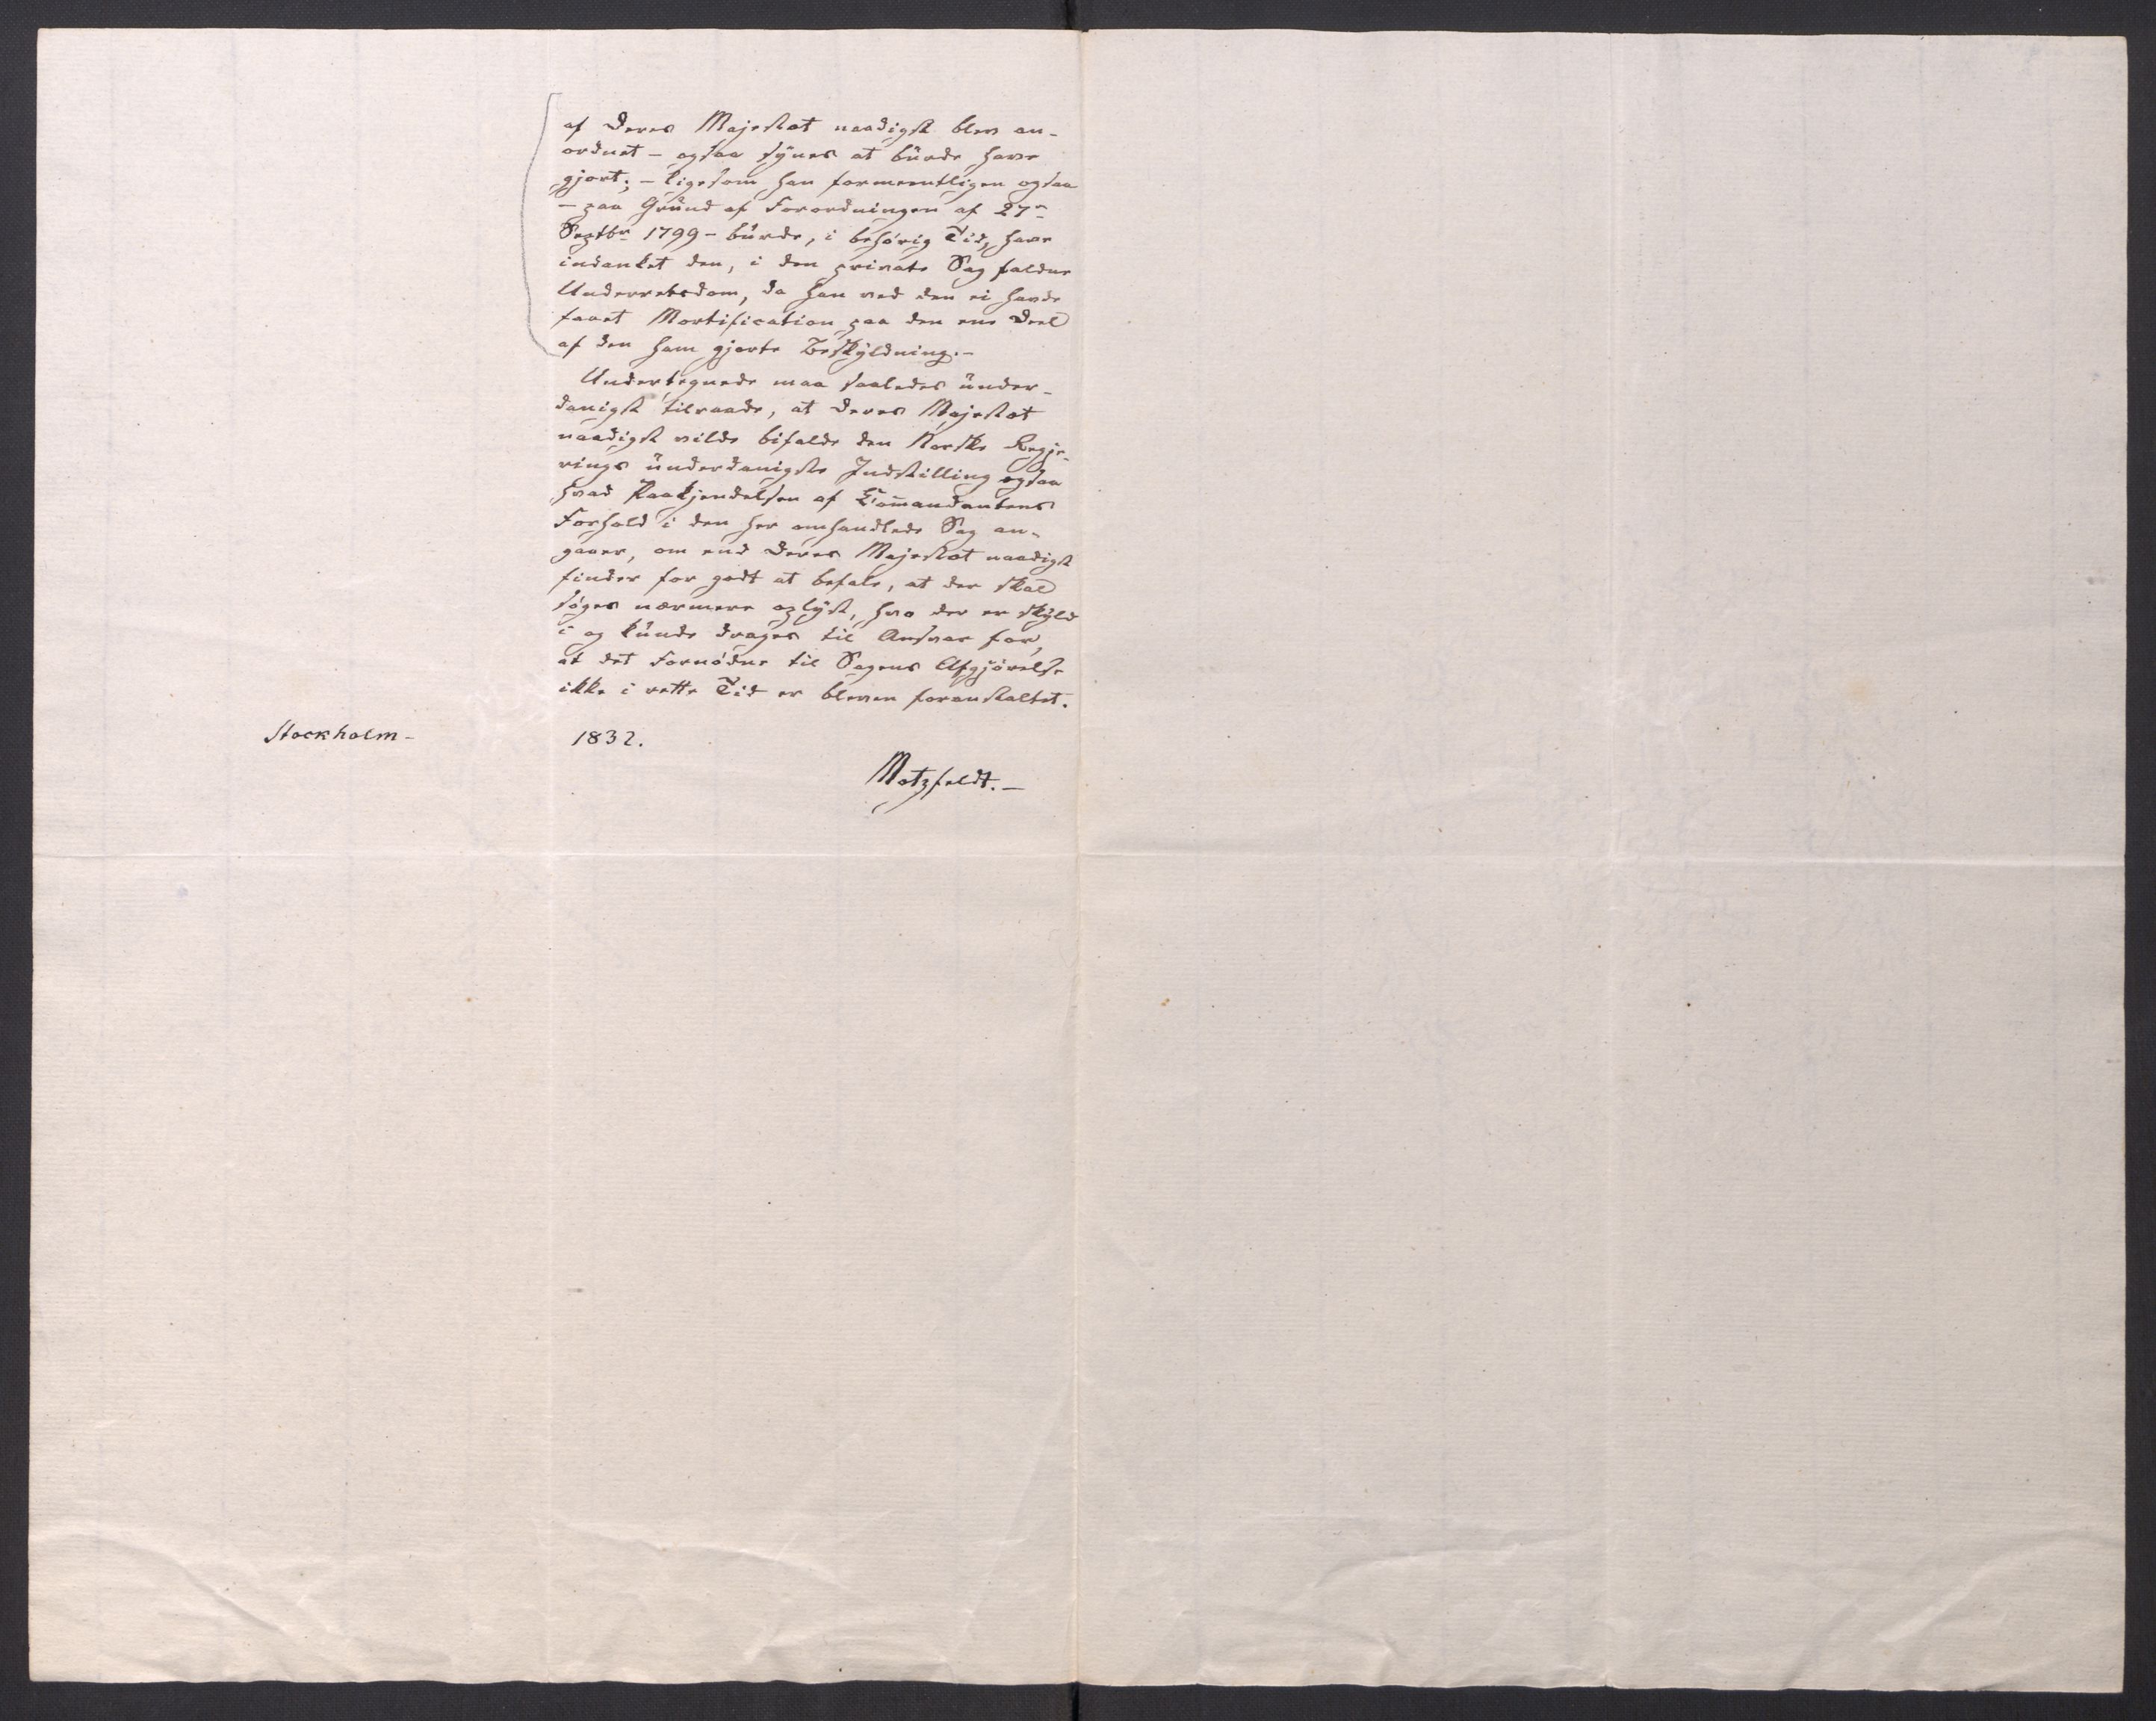 af Deres Majestæt naadigst blev an-
ordnet – ogsaa synes at burde have
gjort; – ligesom han formeentligen ogsaa
– paa Grund af Forordningen af 27de
Septbr 1799 – burde, i behörig Tid, have
indanket den, i den private Sag faldne
Underretsdom, da han ved den ei havde
faaet Mortification paa den ene Deel
af den ham gjorte Beskyldning. –
Undertegnede maa saaledes under-
danigst tilraade, at Deres Majestæt
naadigst vilde bifalde den Norske Regje-
rings underdanigste Indstilling ogsaa
hvad Paakjendelsen af Com̄andantens
Forhold i den her omhandlede Sag an-
gaaer, om end Deres Majestæt naadigst
finder for godt at befale, at der skal
söges nærmere oplyst, hvo der er skyld
i og kunde drages til Ansvar for,
at det Fornödne til Sagens Afgjörelse
ikke i rette Tid er bleven foranstaltet.
Stockholm – 1832.
Motzfeldt. –